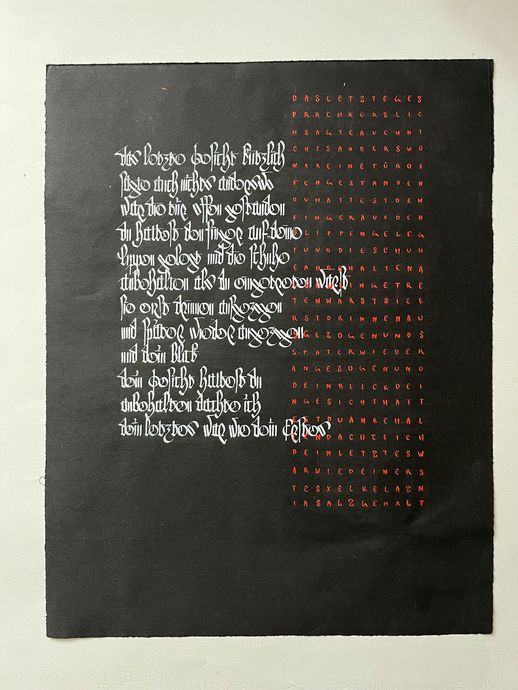 das letzte Gesicht kürzlich
sagte auch nichts anderswo
war die tür offen gestanden
du hattest den finger auf deine
lippen gelegt und die schuhe
anbehalten als du eingetreten warst
sie erst drinnen ausgezogen
und später wieder angezogen
und dein blick
dein gesicht hattest du
anbehalten dachte ich
dein letztes war wie dein erstes
DASLETZTEGES
PRACHKÜRZLIC
HSAGTEAUCHNI
CHTSANDERSWO
WAREINETÜROF
FENGESTANDEN
DUHATTESTDEN
FINGERAUFDEN
LIPPENGELEG
TUNDDIESCHUH
EANBEHALTENA
LSDUEINGETRE
TENWARSTSIEE
RSTDRINNENAU
SGEZOGENUNDS
PÄTERWIEDER
ANGEZOGENUND
DEINBLICKDEI
NGESICHTHATT
ESTDUANBEHAL
TENDACHTEICH
DEINLETZTESW
ARWIEDEINERS
TESXELKELAZN
IASALZGEHALT